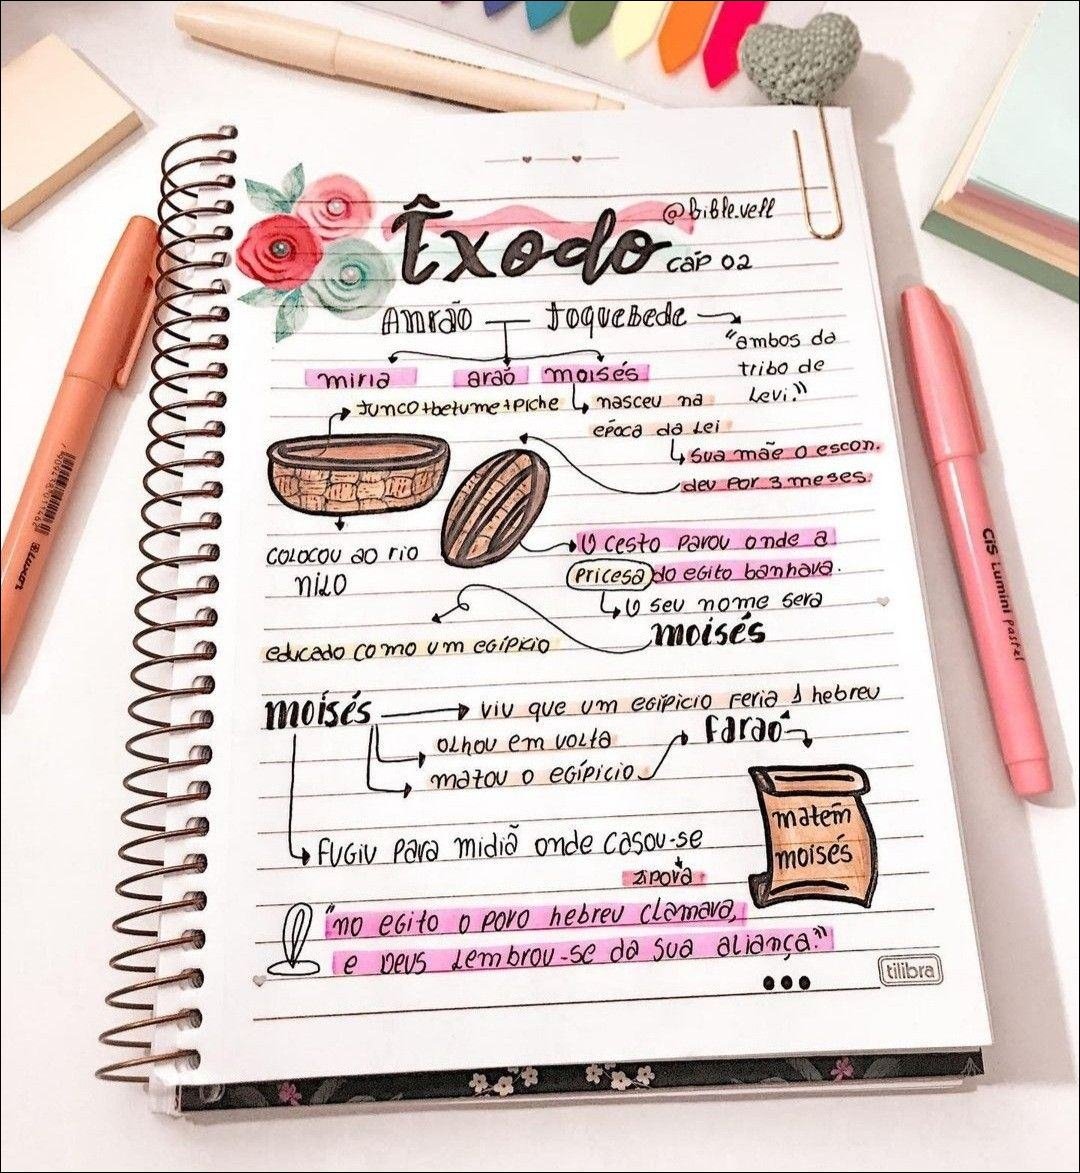 @bible.vell
Êxodo cap 02
Anrão — Joquebede
"ambos da
tribo de
Levi."
miriã araõ moisés
Junco+betume+piche
nasceu na
época da Lei
sua mãe o escon.
deu por 3 meses.
colocou ao rio
nilo
O cesto parou onde a
pricesa do egito banhava.
O seu nome sera
moisés
educado como um egípicio
moisés
viu que um egípicio feria 1 hebreu
olhou em volta
matou o egípicio
faraó
matem
moisés
fugiu para midiã onde casou-se
zípora
"no egito o povo hebreu clamava,
e Deus lembrou-se da sua aliança."
tilibra
CiS Lumini Pastel